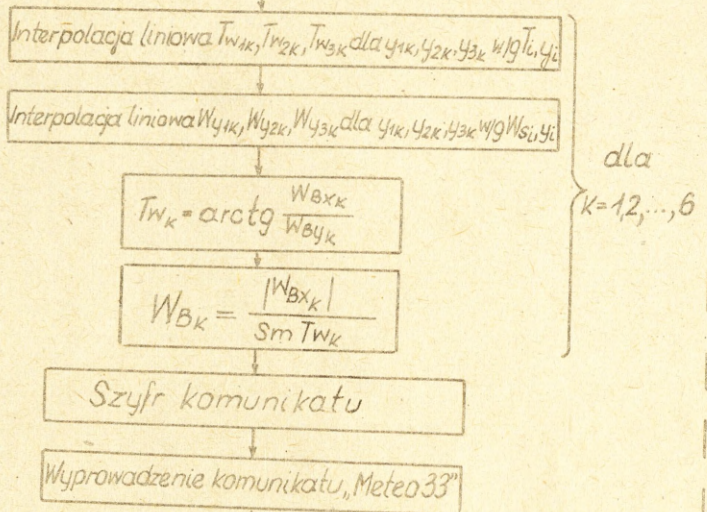 Interpolacja liniowa Tw1k, Tw2k, Tw3k dla y1k, y2k, y3k w/g Ti, yi
Interpolacja liniowa Wy1k, Wy2k, Wy3k dla y1k, y2k, y3k w/g Wsi, yi
dla
k=1,2,...,6
Twk = arctg WBxk / WByk
WBk = |WBxk| / Sm Twk
Szyfr komunikatu
Wyprowadzenie komunikatu „Meteo 33"